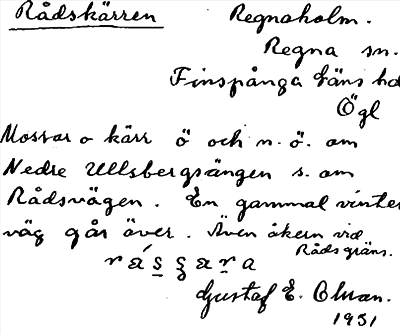 Rådskärren Regnaholm.
Regna sn.
Finspånga läns hd
Ögl
Mossar o kärr ö och n. ö. om
Nedre Ullsbergsängen s. om
Rådsvägen. En gammal vinter
väg går över. Även åkern vid
Rådsgräns.
Gustaf E. Olman.
1931